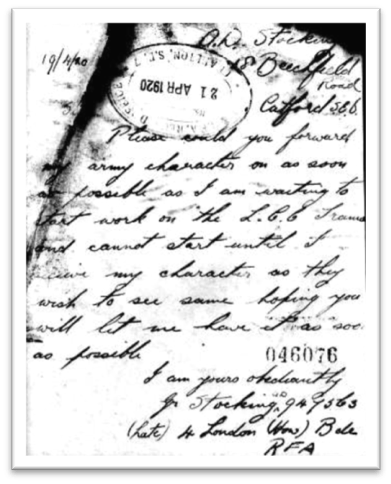 Stocking
19/4/20
Beechfield
Road
21 APR 1920
Catford S.E.6.
Please could you forward
my army character on as soon
as possible as I am waiting to
start work on the L.C.C Trams
and cannot start until I
receive my character as they
wish to see same hoping you
will let me have it as soo
as possible
046076
I am yours obediantly
Stocking. 949563
(Late) 4 London (How) Bde
RFA